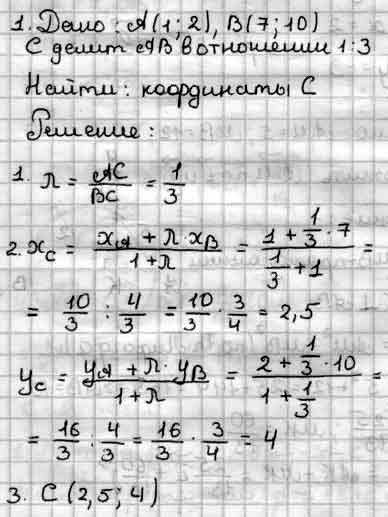 1. Дано: A(1; 2), B(7; 10)
C делит AB в отношении 1:3
Найти: координаты C
Решение:
1. λ = AC/BC = 1/3
2. x_C = (x_A + λ · x_B)/(1 + λ) = (1 + 1/3 · 7)/(1/3 + 1) =
= 10/3 : 4/3 = 10/3 · 3/4 = 2,5
y_C = (y_A + λ · y_B)/(1 + λ) = (2 + 1/3 · 10)/(1 + 1/3) =
= 16/3 : 4/3 = 16/3 · 3/4 = 4
3. C (2,5; 4)